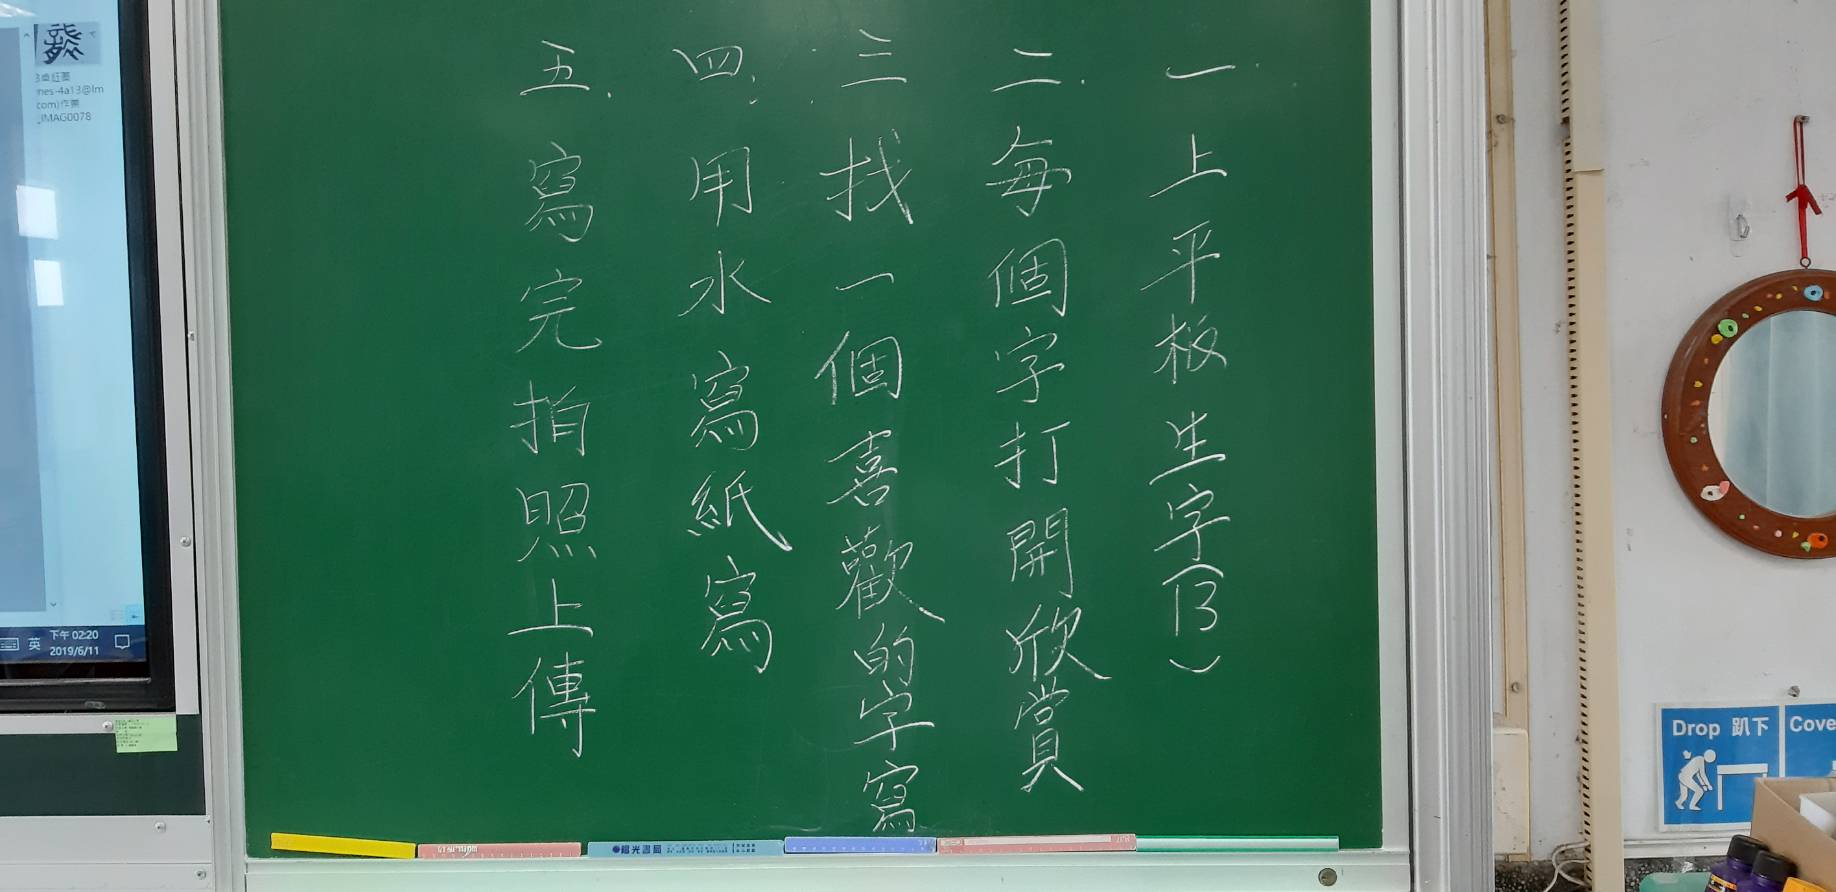 一.上平板生字(13)
二.每個字打開欣賞
三.找一個喜歡的字寫
四.用水寫紙寫
五.寫完拍照上傳
com)作業
_IMAG0078
英
下午 02:20
2019/6/11
陽光書局
Drop 趴下
Cove